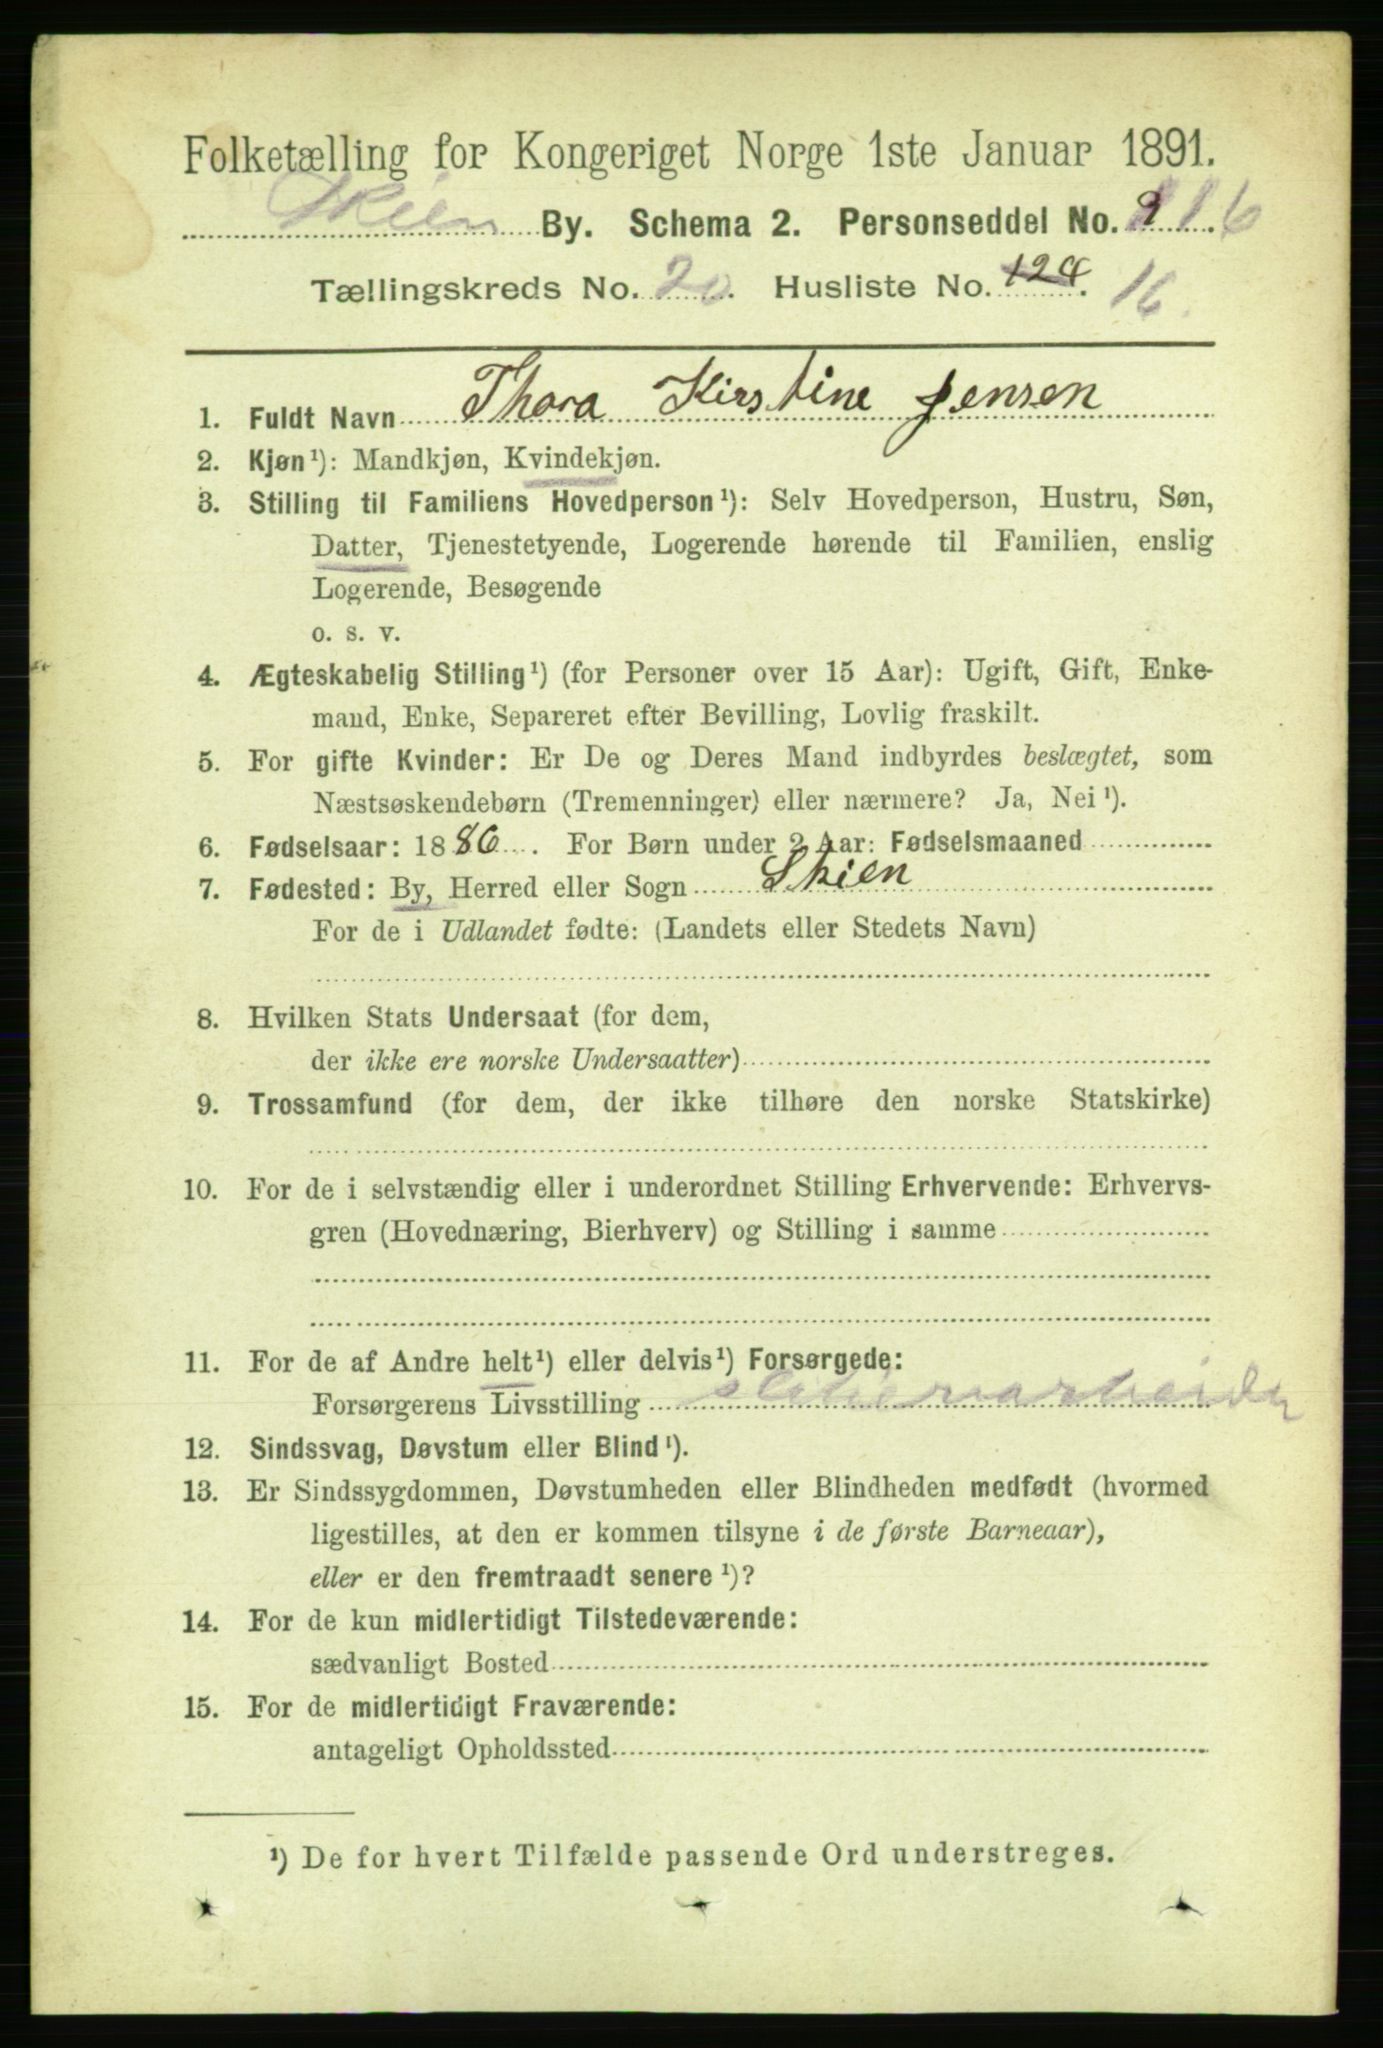 Folketælling for Kongeriget Norge 1ste Januar 1891.
Skien By. Schema 2. Personseddel No. 9 116
Tællingskreds No. 20. Husliste No. 124. 16.
1. Fuldt Navn Thora Kirstine Jensen
2. Kjøn ¹): Mandkjøn, Kvindekjøn.
3. Stilling til Familiens Hovedperson ¹): Selv Hovedperson, Hustru, Søn,
Datter, Tjenestetyende, Logerende hørende til Familien, enslig
Logerende, Besøgende
o. s. v.
4. Ægteskabelig Stilling ¹) (for Personer over 15 Aar): Ugift, Gift, Enke-
mand, Enke, Separeret efter Bevilling, Lovlig fraskilt.
5. For gifte Kvinder: Er De og Deres Mand indbyrdes beslægtet, som
Næstsøskendebørn (Tremenninger) eller nærmere? Ja, Nei ¹).
6. Fødselsaar: 1886. For Børn under 2 Aar: Fødselsmaaned
7. Fødested: By, Herred eller Sogn Skien
For de i Udlandet fødte: (Landets eller Stedets Navn)
8. Hvilken Stats Undersaat (for dem,
der ikke ere norske Undersaatter)
9. Trossamfund (for dem, der ikke tilhøre den norske Statskirke)
10. For de i selvstændig eller i underordnet Stilling Erhvervende: Erhvervs-
gren (Hovednæring, Bierhverv) og Stilling i samme
11. For de af Andre helt ¹) eller delvis ¹) Forsørgede:
Forsørgerens Livsstilling
12. Sindssvag, Døvstum eller Blind ¹).
13. Er Sindssygdommen, Døvstumheden eller Blindheden medfødt (hvormed
ligestilles, at den er kommen tilsyne i de første Barneaar),
eller er den fremtraadt senere ¹)?
14. For de kun midlertidigt Tilstedeværende:
sædvanligt Bosted
15. For de midlertidigt Fraværende:
antageligt Opholdssted
¹) De for hvert Tilfælde passende Ord understreges.